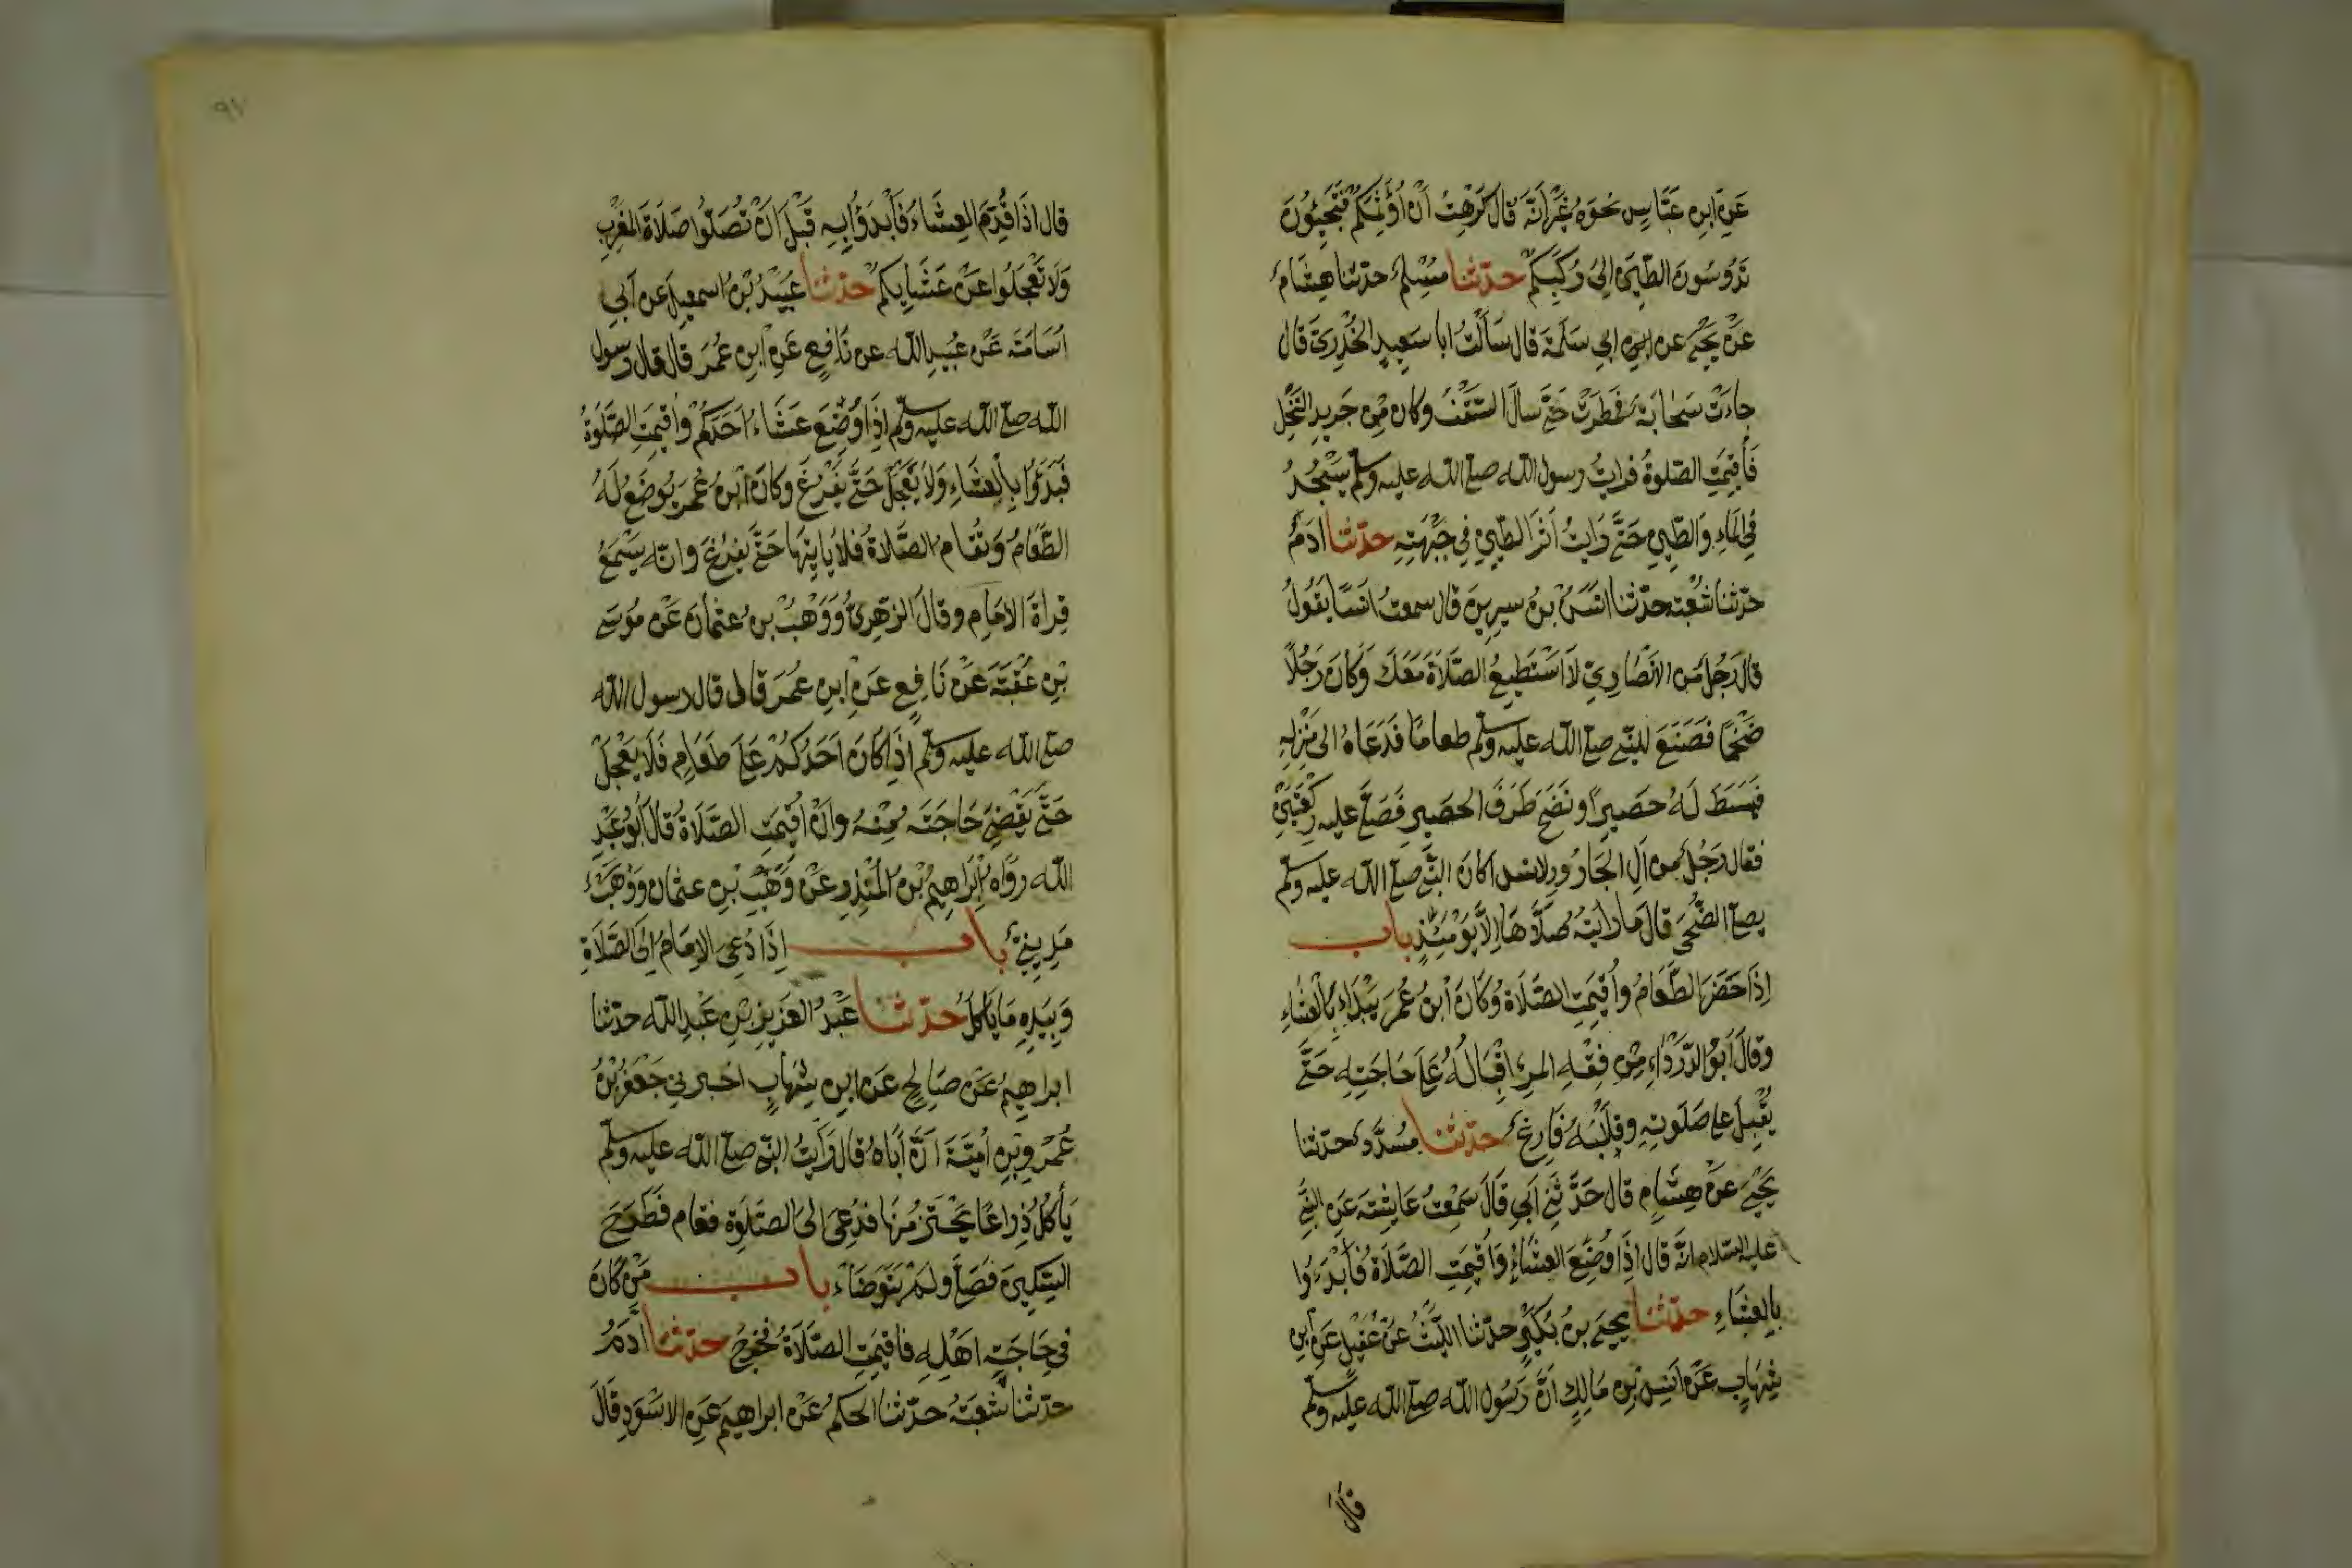 عَنِ ابنِ عَبَّاسٍ نحوَهُ غَيْرَ انَّهُ قال كَرِهْتُ اَنْ اُؤَثِّمَكُمْ فَتَجِيُونَ
تَدُوسُونَ الطِّينَ اِلىَ رُكَبِكُمْ حدّثنا مُسْلِمٌ حدّثنا هِشَامٌ
عَنْ يَحْيَى عن ابى سَلَمَةَ قال سَاَلْتُ ابا سَعِيدٍ الخُدْرِىَّ قَال
جاءَتْ سَحَابَةٌ فمَطَرَتْ حَتَّى سالَ السَّقْفُ وكان مِنْ جَرِيدِ النَّخْلِ
فَاُقِيمَتِ الصّلوةُ فرايتُ رسول الله صلى الله عليه وسلم يَسْجُدُ
فِى المَاءِ وَالطِّينِ حَتَّى رَايتُ اَثَرَ الطِّينِ فِى جَبْهَتِهِ حدّثنا ادَمُ
حدّثنا شُعْبَة حدّثنا انَسُ بنُ سِيرِينَ قال سمعتُ انَسًا يَقُولُ
قال رَجُلٌ مِنَ الاَنْصَارِ اِنِّى لاَ اَسْتَطِيعُ الصَّلاَةَ مَعَكَ وَكانَ رَجُلاً
ضَخْمًا فَصَنَعَ للنّبِىّ صلى الله عليه وسلم طعامًا فَدَعَاهُ الى مَنْزِلِهِ
فبَسَطَ لَهُ حَصِيراً ونَضَحَ طَرَفَ الحَصِيرِ فَصَلَّى عليه رَكْعَتَيْنِ
فقال رَجُلٌ مِن آلِ الجَارُودِ لانس اَكانَ النَّبِىُّ صلى الله عليه وسلم
يصلى الضُّحَى قالَ مَا رَاَيْتُهُ صَلاَّهَا اِلاَّ يَوْمَئِذٍ باب
اِذَا حَضَرَ الطَّعَامُ واُقِيمَتِ الصَّلاَةُ وَكَانَ ابْنُ عُمَرَ يَبْدَاءُ بِالعَشَاءِ
وقالَ اَبُو الدَّرْدَاءِ مِنْ فِقْهِ المرءِ اِقْبَالُهُ عَلَى حَاجَتِهِ حَتَّى
يُقْبِلَ على صَلَوتِهِ وقَلْبُهُ فَارِغٌ حدّثنا مُسَدَّدٌ حدّثنا
يَحْيَى عَنْ هِشَامٍ قال حَدَّثَنِى اَبِى قَالَ سَمِعْتُ عَايِشَةَ عَنِ النَّبِىّ
عليه السّلام انَّهُ قال اِذَا وُضِعَ العَشَاءُ وَاُقِيمَتِ الصَّلاَةُ فَابْدَءُوا
بِالعَشَاءِ حدّثنا يحيى بنُ بُكَيْرٍ حدّثنا اللَّيْثُ عَنْ عُقَيْلٍ عَنِ ابْنِ
شِهَابٍ عَنْ اَنَسِ بْنِ مَالِكٍ اَنَّ رَسُول الله صلى الله عليه وسلم
قال
٩٧
قال اذَا قُدِّمَ العَشَاءُ فَابْدَؤُا بِهِ قَبْلَ اَنْ تُصَلّوُا صَلاَةَ المَغْرِبِ
وَلاَ تَعْجَلُوا عَنْ عَشَايِكُمْ حدّثنا عُبَيْدُ بْنُ اسمعِيلَ عن اَبِى
اُسَامَةَ عَنْ عُبَيدِ الله عن نَافِعٍ عَنِ ابنِ عُمَرَ قال قال رسول
الله صلى الله عليه وسلم اِذَا وُضِعَ عَشَاءُ اَحَدِكُمْ وَاُقِيمَتِ الصَّلَوةُ
فَبَدَؤُا بِالْعَشَاءِ وَلاَ يَعْجَلْ حَتَّى يَفْرُغَ وكانَ ابْنُ عُمَرَ يُوضَعُ لَهُ
الطَّعَامُ وَتُقَامُ الصَّلاَةُ فَلاَ يَاتِيهَا حَتَّى يَفْرُغَ وانّه يَسْمَعُ
قِراةَ الاِمَامِ وقالَ الزُهَيْرِىُّ وَوَهْبُ بنُ عثمانَ عَنْ مُوسَى
بْنِ عُقْبَةَ عَنْ نَافِعٍ عَنِ ابنِ عُمَرَ قال قال رسول الله
صلى الله عليه وسلم اِذَا كانَ اَحَدُكُمْ عَلَى طَعَامٍ فَلاَ يَعْجَلْ
حَتَّى يَقْضِىَ حَاجَتَهُ مِنْهُ وَاِنْ اُقِيمَتِ الصَّلاَةُ قالَ اَبُو عَبْدِ
الله رَوَاه اِبْرَاهِيمُ بْنُ المُنْذِرِ عَنْ وَهْبِ بْنِ عثمان وَوَهْبٌ
مَدِينِىٌّ باب اِذَا دُعِىَ الاِمَامُ اِلَى الصَّلاَةِ
وَبِيَدِهِ مَا يَاكُلُ حدّثنا عَبْدُ العَزِيزِ بْنِ عَبْدِ الله حدّثنا
ابراهِيمُ عَنْ صَالِحٍ عَنِ ابنِ شِهَابٍ اخبرنى جَعْفَرُ بْنُ
عَمْرِو بْنِ اُمَيَّةَ اَنَّ اَبَاهُ قال رَاَيْتُ النّبىّ صلى الله عليه وسلم
يَأكُلُ ذِراعًا يَحْتَزُّ مِنْهَا فدُعِىَ الىَ الصَّلَوةِ فقام فَطَرَحَ
السِّكِّينَ فَصَلَّى ولَمْ يَتَوَضَّاءْ باب مَنْ كَانَ
فى حَاجَةِ اهْلِهِ فَاُقِيمَتِ الصَّلاَةُ فخَرَجَ حدّثنا اَدَمُ
حدّثنا شُعْبَةُ حدّثنا الحَكَمُ عَنْ ابراهيمَ عَنِ الاَسْوَدِ قَالَ